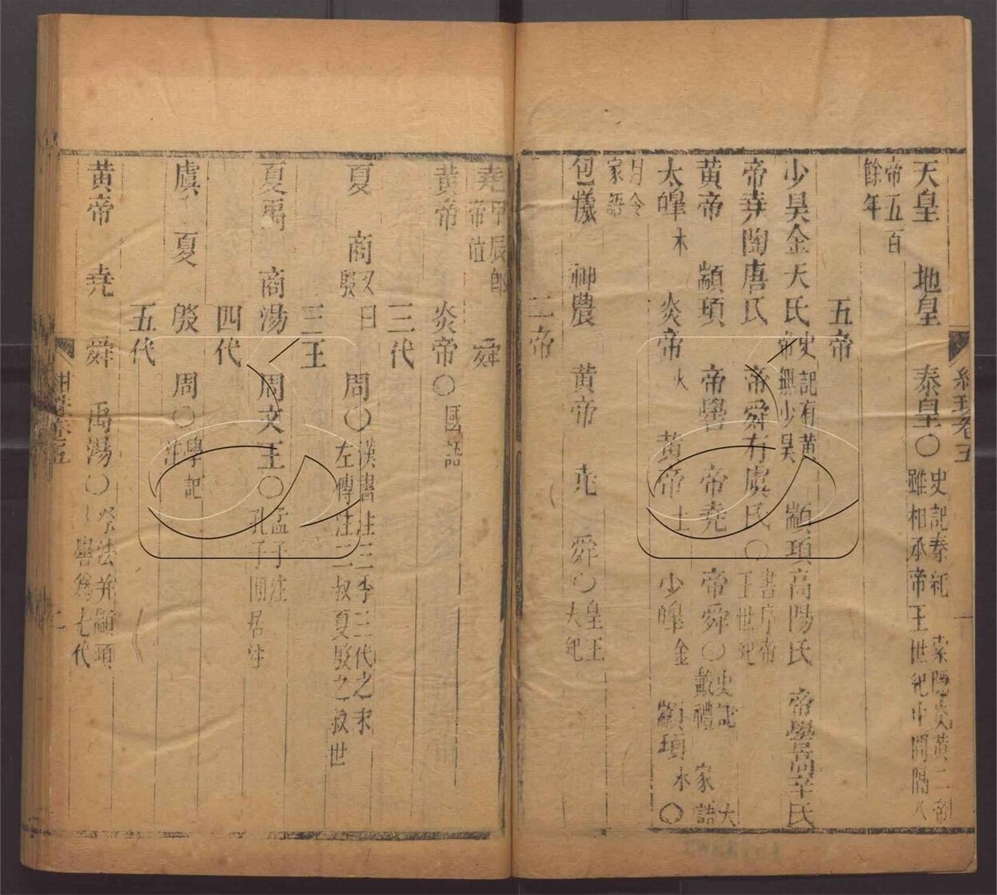 天皇 地皇 泰皇○史記秦紀 索隱炎黃二帝雖相承帝王世紀中間隔八
帝五百餘年
五帝
少昊金天氏史記有黃帝無少昊 顓頊高陽氏 帝嚳高辛氏
帝堯陶唐氏 帝舜有虞氏○書序帝王世紀
黃帝 顓頊 帝嚳 帝堯 帝舜○史記 大戴禮 家語
太皥木 炎帝火 黃帝土 少皥金 顓頊水○
月令家語
包犧 神農 黃帝 堯 舜○皇王大紀
二帝
堯甲辰卽帝位 舜
黃帝 炎帝○國語
三代
夏 商又曰殷 周○漢書注三季三代之末左傳注二叔夏殷之叔世
三王
夏禹 商湯 周文王○孟子注孔子閒居
四代
虞 夏 殷 周○學記注
五代
黃帝 堯 舜 禹 湯○祭法并顓頊嚳爲七代